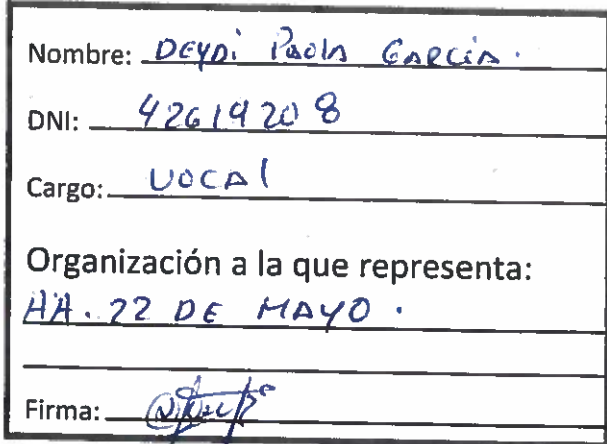 Nombre: DEYDi PAOlA GARCíA.
DNI: 42619208
Cargo: VOCAl
Organización a la que representa:
AA. 22 DE MAYO.
Firma: